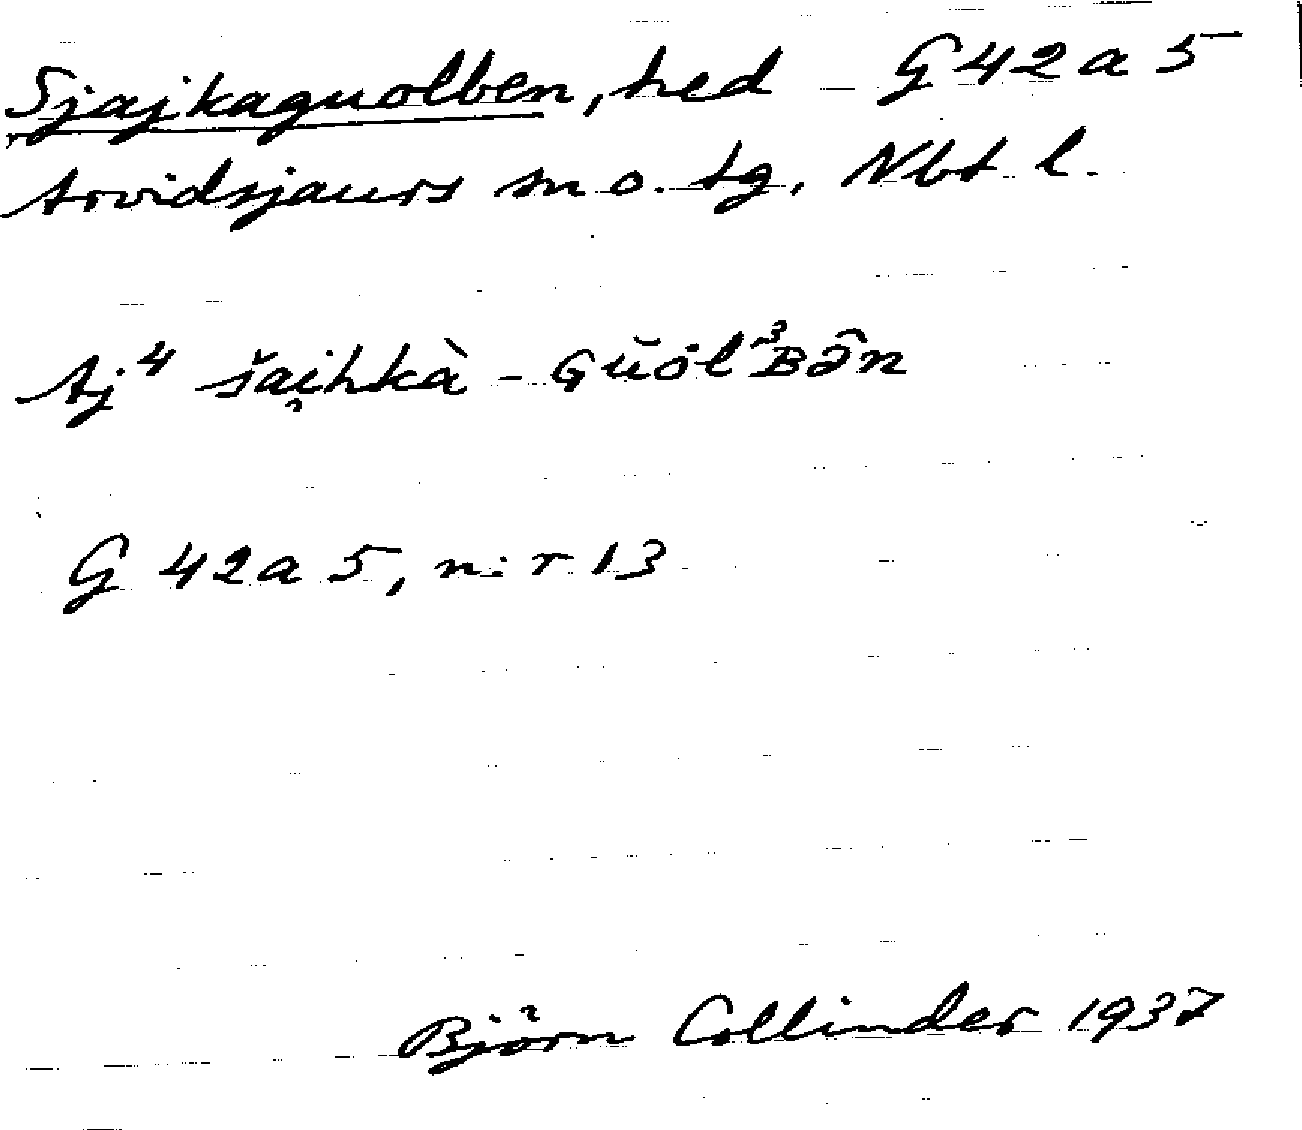 Sjajkaguolben, hed G 42 a 5
Arvidsjaurs sn o. tg, Nbt l.
Aj⁴ šai̯hkà - Gŭòl³Bə̂n
G 42 a 5, n:r 13
Björn Collinder 1937